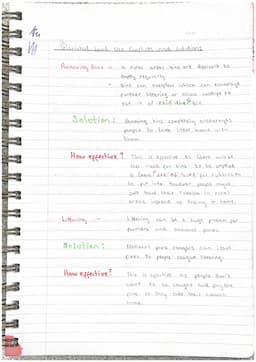 Land Use Conflicts and Solutions
Removing Bins - In rural areas bins are difficult to
empty regularly
- Bins can overflow which can encourage
further littering or allow wildlife to
eat it of the bin.
Solution: Removing bins completely
people to take litter home with
them.
How effective? This is effective as there would be
less need for bins to be emptied
is for rubbish to
be put into. However people might
just their rubbish in rural
areas instead of taking it home.
Littering - Littering can be a huge problem for
farmers and national parks.
Solution: National park rangers can issue
fines to people caught littering.
How effective? This is effective as people don't
want to be caught and pay the
fine so they take their rubbish
home.